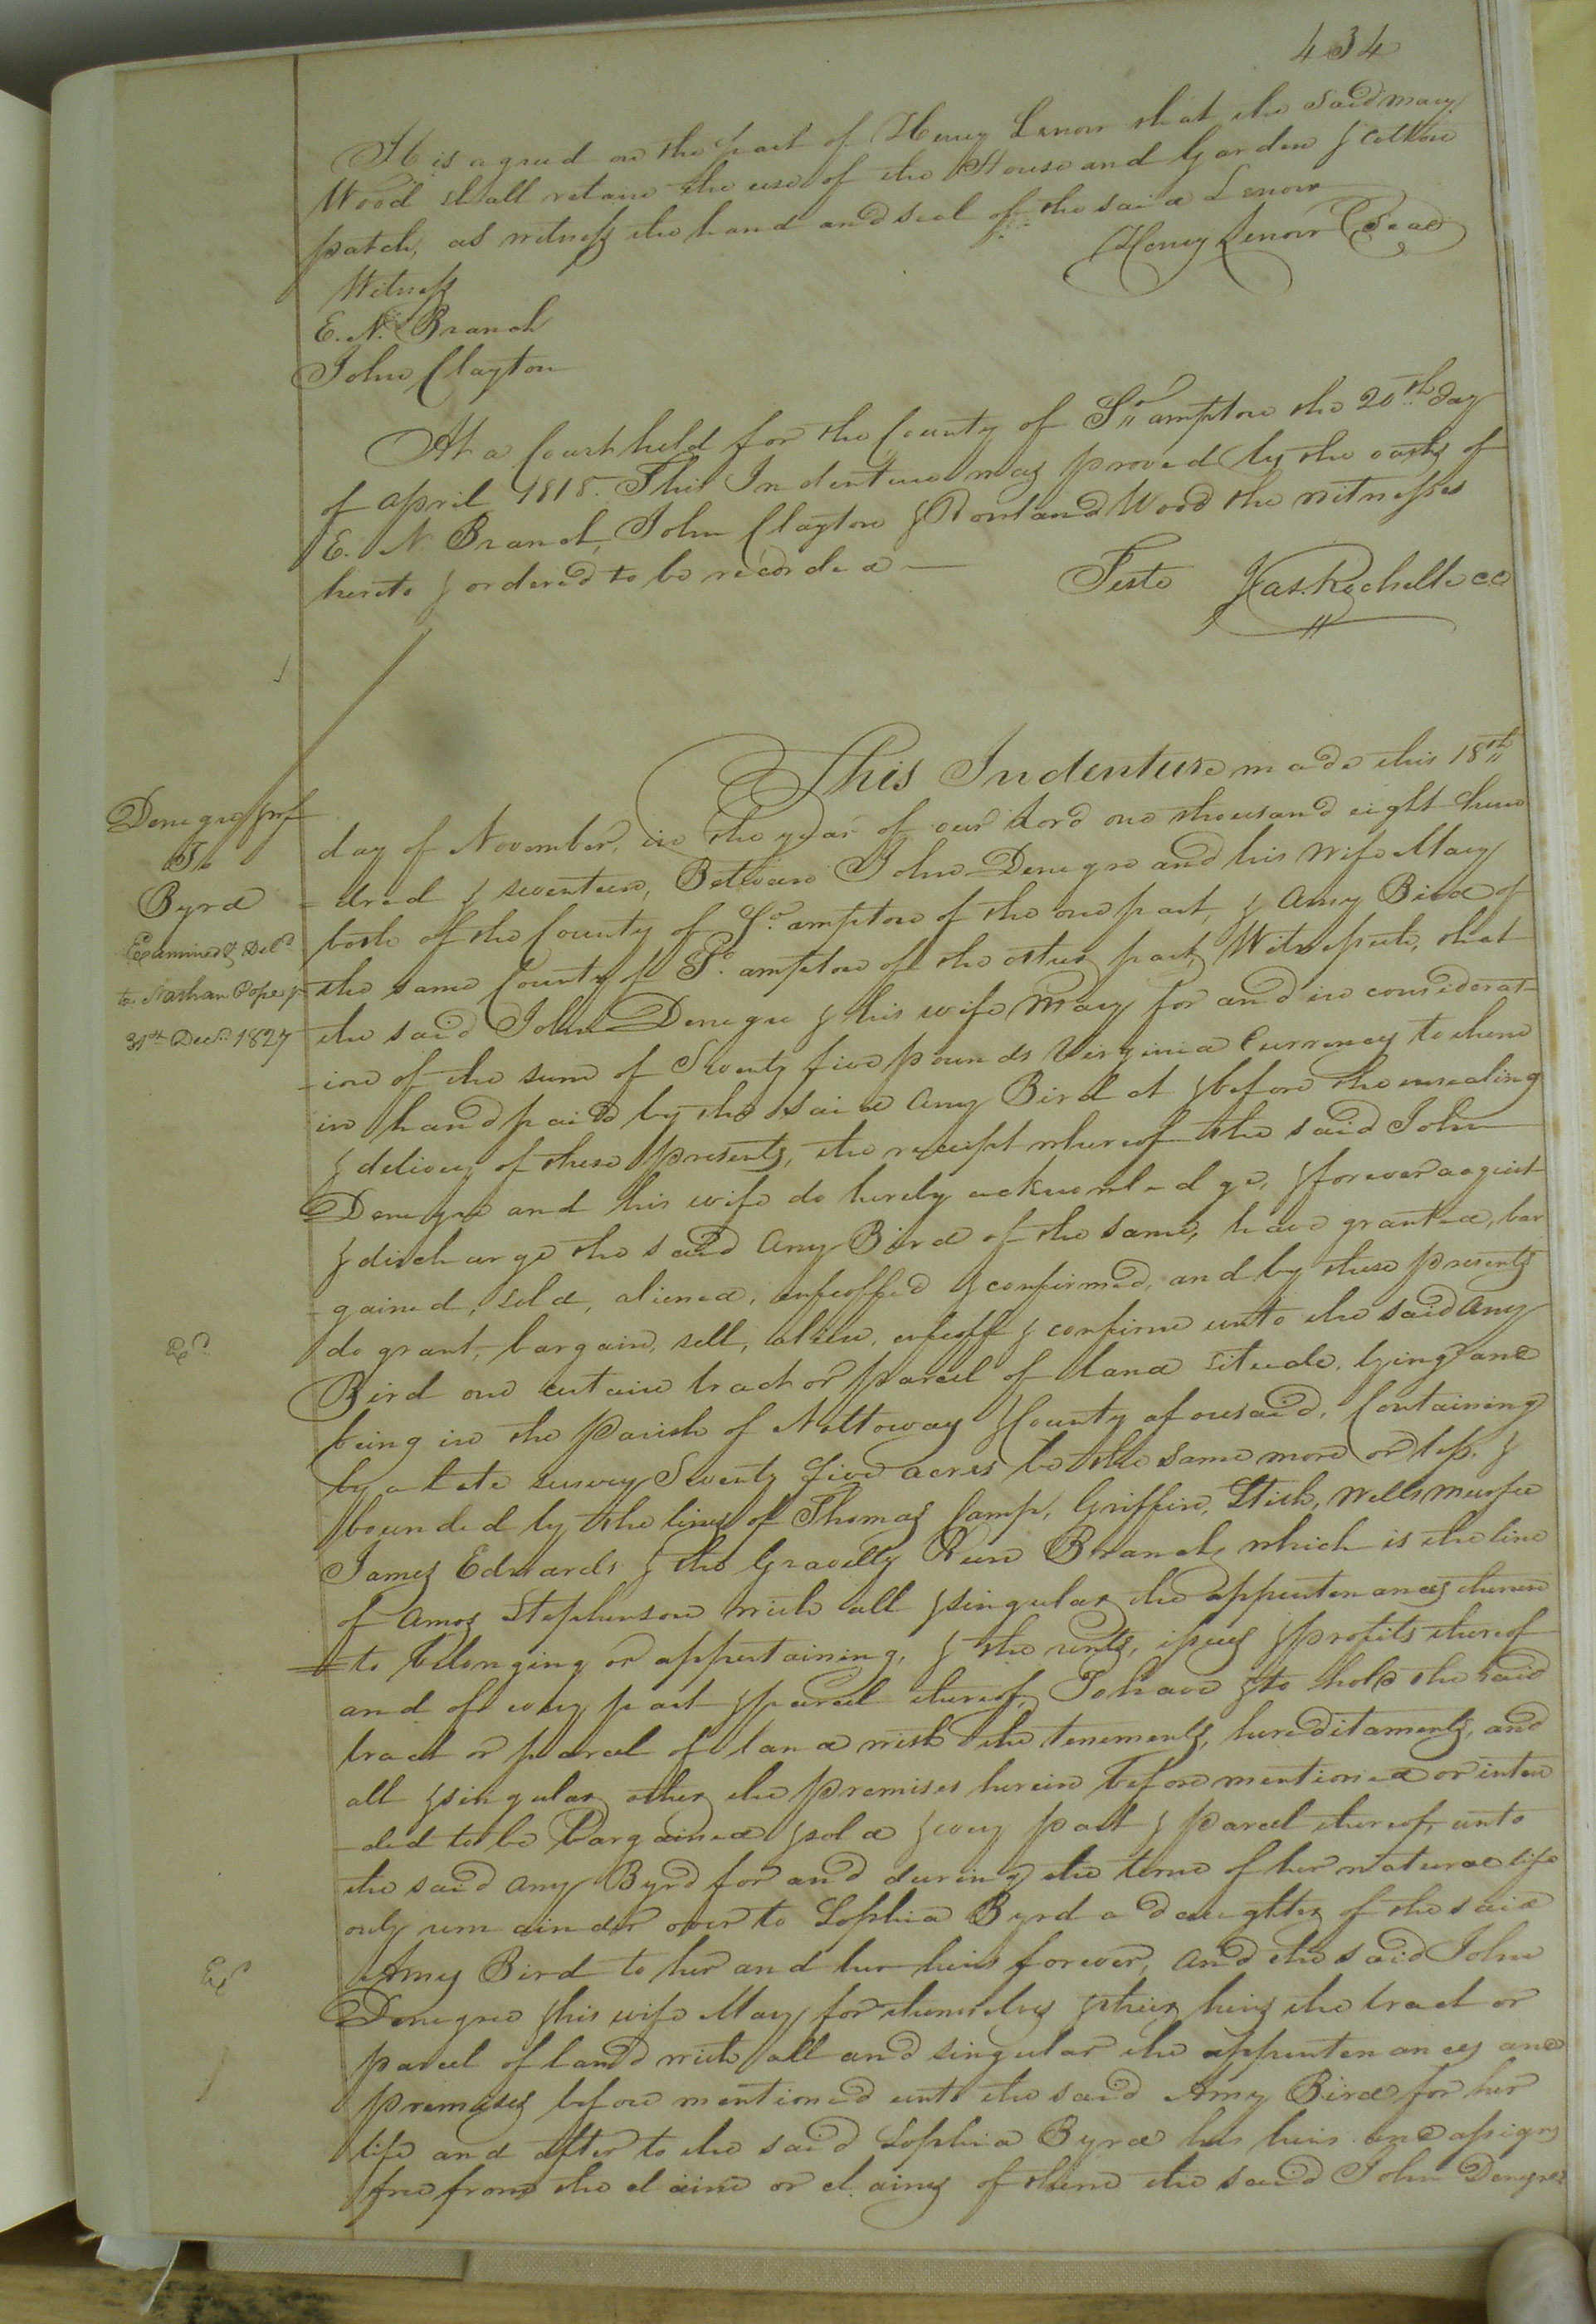 434
It is agreed on the part of Henry Lenow that the said Mary
Wood shall retane the use of the House and Garden & Cotton
patch, as witness the hand and seal of the said Lenow
Henry Lenow Seal
Witness
E. N. Branch
John Clayton
At a Court held for the County of So.ampton the 20th day
of April 1818. This Indenture was proved by the oaths of
E. N. Branch, John Clayton & Rowland Wood the witnesses
hereto & ordered to be recorded
Teste Jas. Rochelle CC
This Indenture made this 18th
Denegre & wf
To
Byrd
Examined & Deld
to Nathan Pope
31st Decr. 1827
day of November, in the year of our Lord one thousand eight hun
-dred & seventeen, Between John Denegre and his wife Mary
both of the County of So.ampton of the one part, & Amy Bird of
the same County of So.ampton of the other part, Witnesseth, that
the said John Denegre & his wife Mary for and in considerat-
-ion of the sum of Seventy five pounds Virginia Currency to them
in hand paid by the said Amy Bird at & before the ensealing
& delivery of these presents, the receipt whereof the said John
Denegre and his wife do hereby acknowledge, & forever acquit
& discharge the said Amy Bird of the same, have granted, bar
-gained, sold, aliened, enfeoffed & confirmed, and by these presents
do grant, bargain, sell, alien, enfeoff & confirm unto the said Amy
Bird one certain tract or parcel of land situate, lying and
being in the Parish of Nottoway & County aforesaid, Containing
by a late survey Seventy five acres be the same more or less, &
bounded by the lines of Thomas Camp, Griffin, Stith, Wells Murfee
James Edwards & the Gravelly Run Branch, which is the line
of Amos Stephenson with all & singular the appurtenances thereun
-to belonging or appertaining, & the rents, issues & profits thereof
and of every part & parcel thereof, To have & to hold the said
tract or parcel of land with the tenements, hereditaments, and
all & singular other the premises herein before mentioned or inten
-ded to be bargained & sold & every part & parcel thereof, unto
the said Amy Byrd for and during the term of her natural life
only remainder over to Sophia Byrd a daughter of the said
Amy Bird to her and her heirs forever, and the said John
Denegre & his wife Mary for themselves & their heirs the tract or
parcel of land with all and singular the appurtenances and
premises before mentioned unto the said Amy Bird for her
life and after to the said Sophia Byrd her heirs and assigns
free from the claim or claims of them the said John Denegre